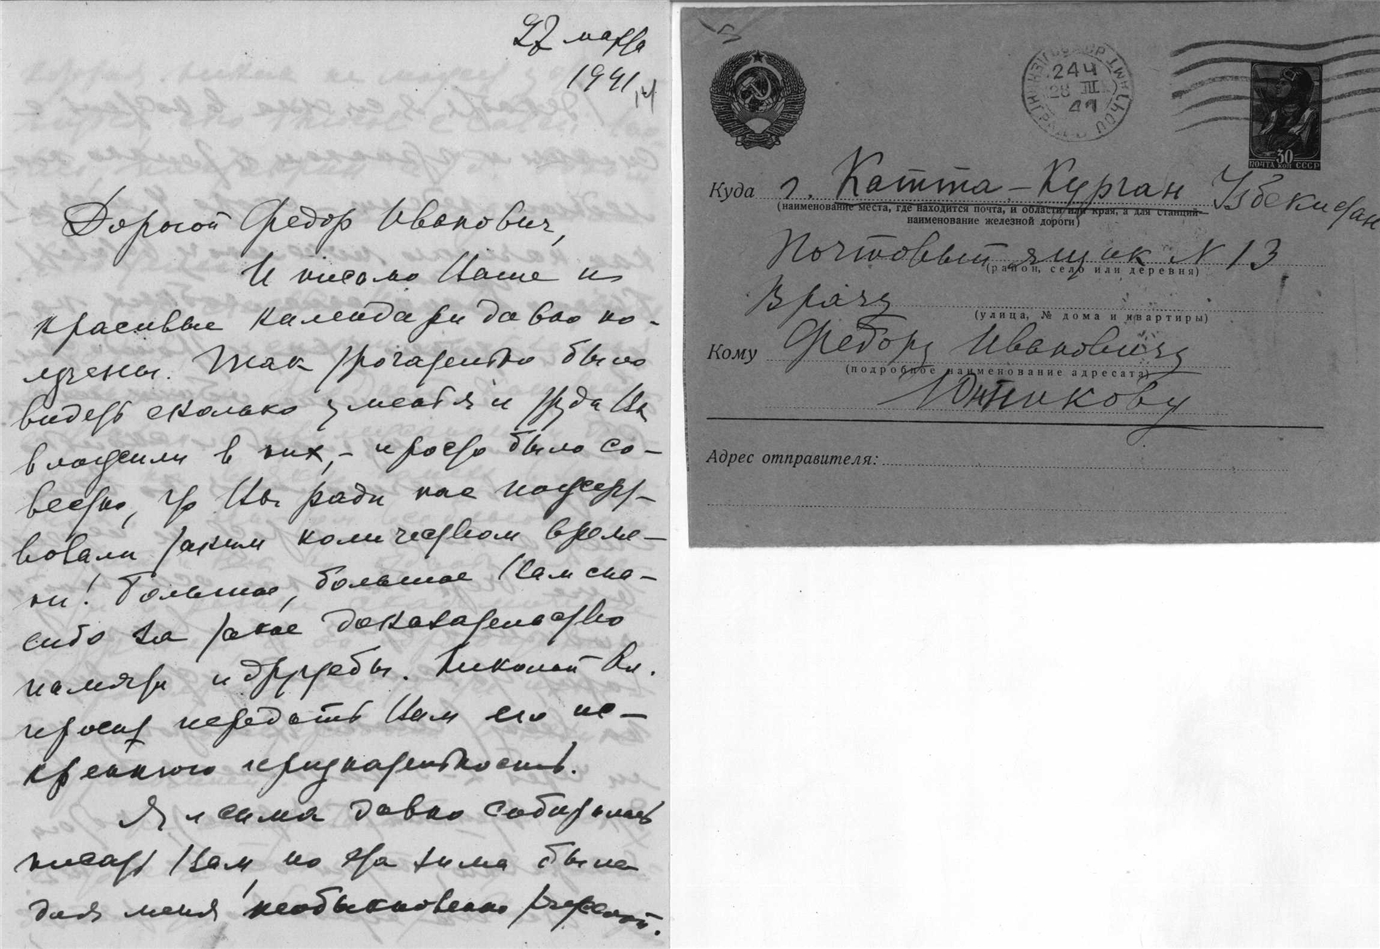 27 марта
1941
Дорогой Федор Иванович,
И письмо Ваше и
красивые календари давно по-
лучены. Так трогательно было
видеть сколько уменья и труда Вы
вложили в них, – просто было со-
вестно, что Вы ради нас пожерт-
вовали таким количеством време-
ни! Большое, большое Вам спа-
сибо за такое доказательство
памяти и дружбы. Николай Вл.
просит передать Вам его ис-
креннюю признательность.
Я и сама давно собиралась
писать Вам, но эта зима была
для меня необыкновенно тяжелой.
ЛЕНИНГРАД
24 Ч
28 III
41
ПОЧТА СССР
30
Куда г. Катта-Курган Узбекистан
(наименование места, где находится почта, и области или края, а для станций-
наименование железной дороги)
Почтовый ящик N 13
(район, село или деревня)
Врачу
(улица, № дома и квартиры)
Кому Федору Ивановичу
(подробное наименование адресата)
Адрес отправителя: